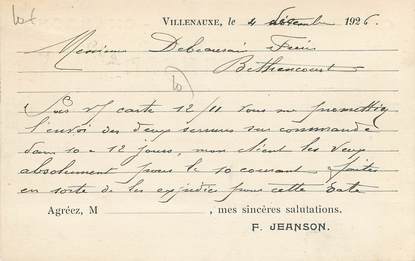 lot
VILLENAUXE, le 4 décembre 1926.
Messieurs Debeauvais Frères
Béthencourt
Par v/ carte 12/11 vous me promettiez
l'envoi des deux serrures sur commande
dans 10 à 12 jours, mon client les veux
absolument pour le 10 courant faites
en sorte de les expédier pour cette date
Agréez, M , mes sincères salutations.
F. JEANSON.